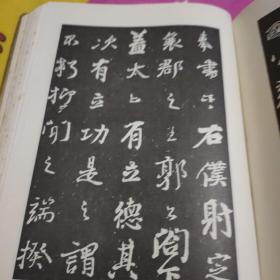 表书奉右仆射定
襄郡王郭公阁下
盖太上有立德其
次有立功是之谓
不朽抑闻之端揆